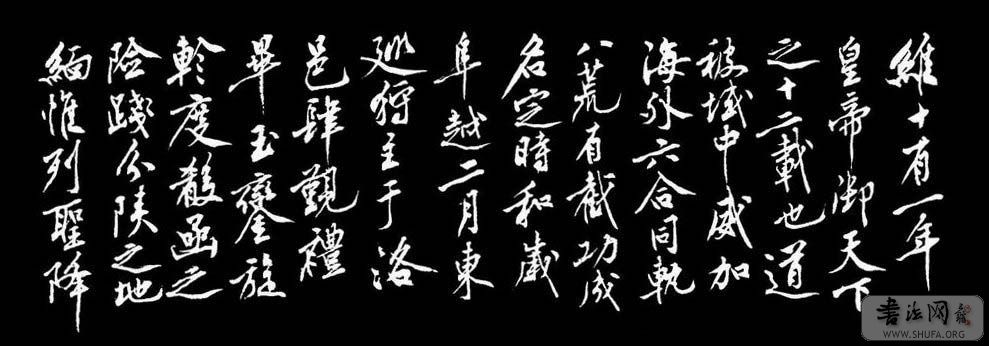 維十有一年
皇帝御天下
之十二載也道
被域中威加
海外六合同軌
八荒有截功成
名定時和歲
阜越二月東
巡狩至于洛
邑肆覲禮
畢玉鑾旋
軫度殽函之
險踐分陝之地
緬惟列聖降
書法网
WWW.SHUFA.ORG